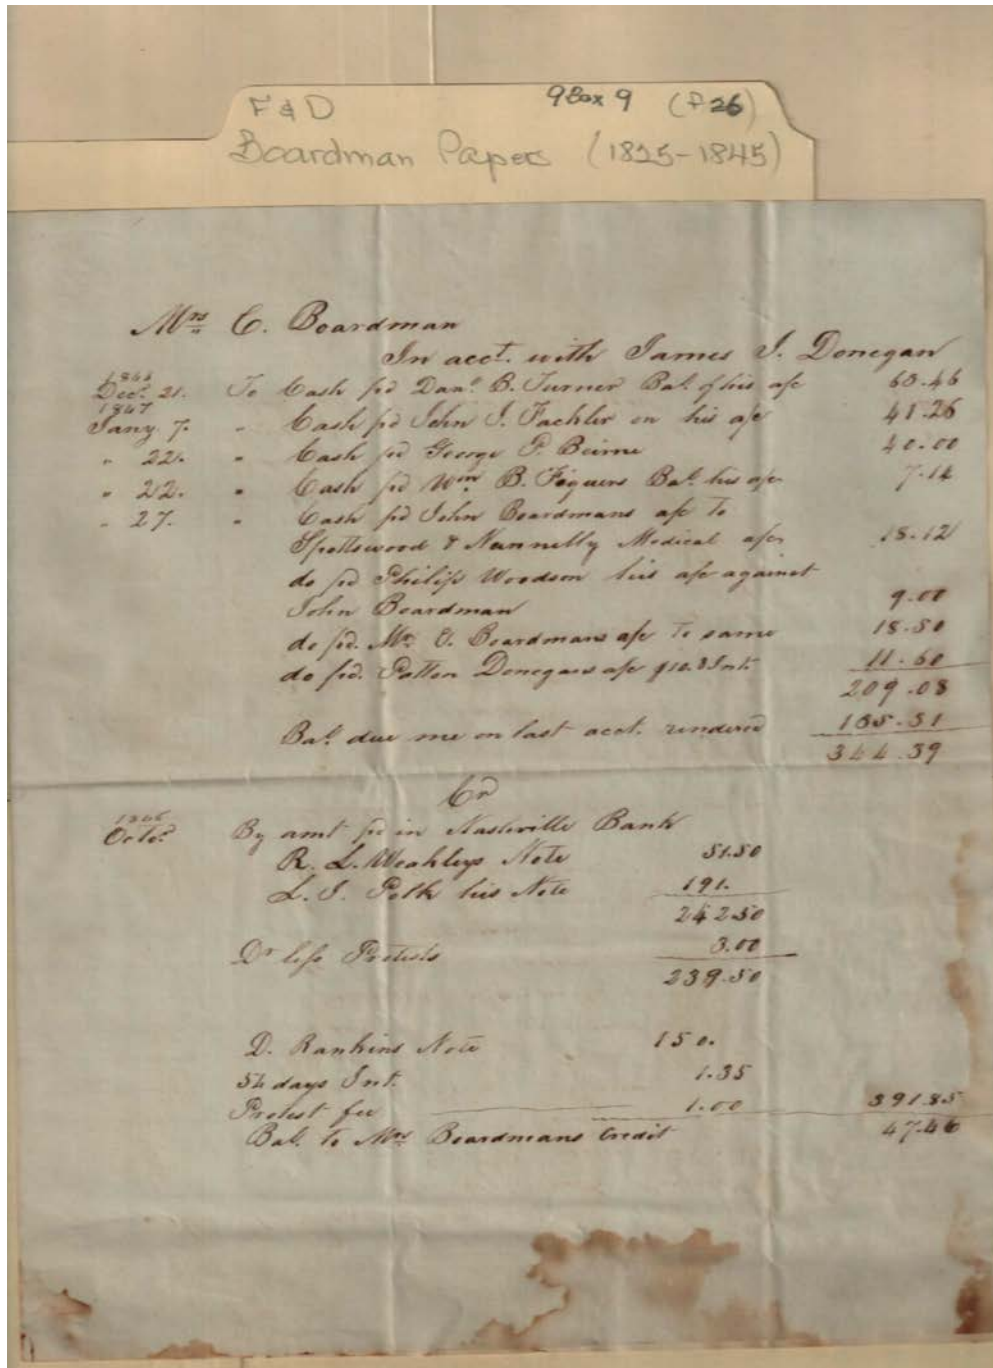 F & D 9 Box 9 (F26)
Boardman Papers (1825-1845)
Mrs C. Boardman
In acct. with James J. Donegan
1846
Decr. 21. To Cash pd Danl. B. Turner Bal. of his a/c 63.46
1847
Jany 7. " Cash pd John J. Fackler on his a/c 41.26
" 22. " Cash pd George P. Beirne 40.00
" 22. " Cash pd Wm. B. Figuers Bal. his a/c 7.14
" 27. " Cash pd John Boardmans a/c to
Spottswood & Nunnelly Medical a/c 18.12
do pd Philip Woodson his a/c against
John Boardman 9.00
do pd. Mrs C. Boardmans a/c to same 18.50
do pd. Patton Donegans a/c & Int. 11.60
209.08
Bal. due me on last acct. rendered 135.31
344.39
Cr
1846
Octo. By amt pd in Nashville Bank
R. L. Weakleys Note 51.50
L. J. Polk his Note 191.
242.50
Dr less Protests 3.00
239.50
D. Rankins Note 150.
54 days Int. 1.35
Protest fee 1.00 391.85
Bal. to Mrs Boardmans Credit 47.46